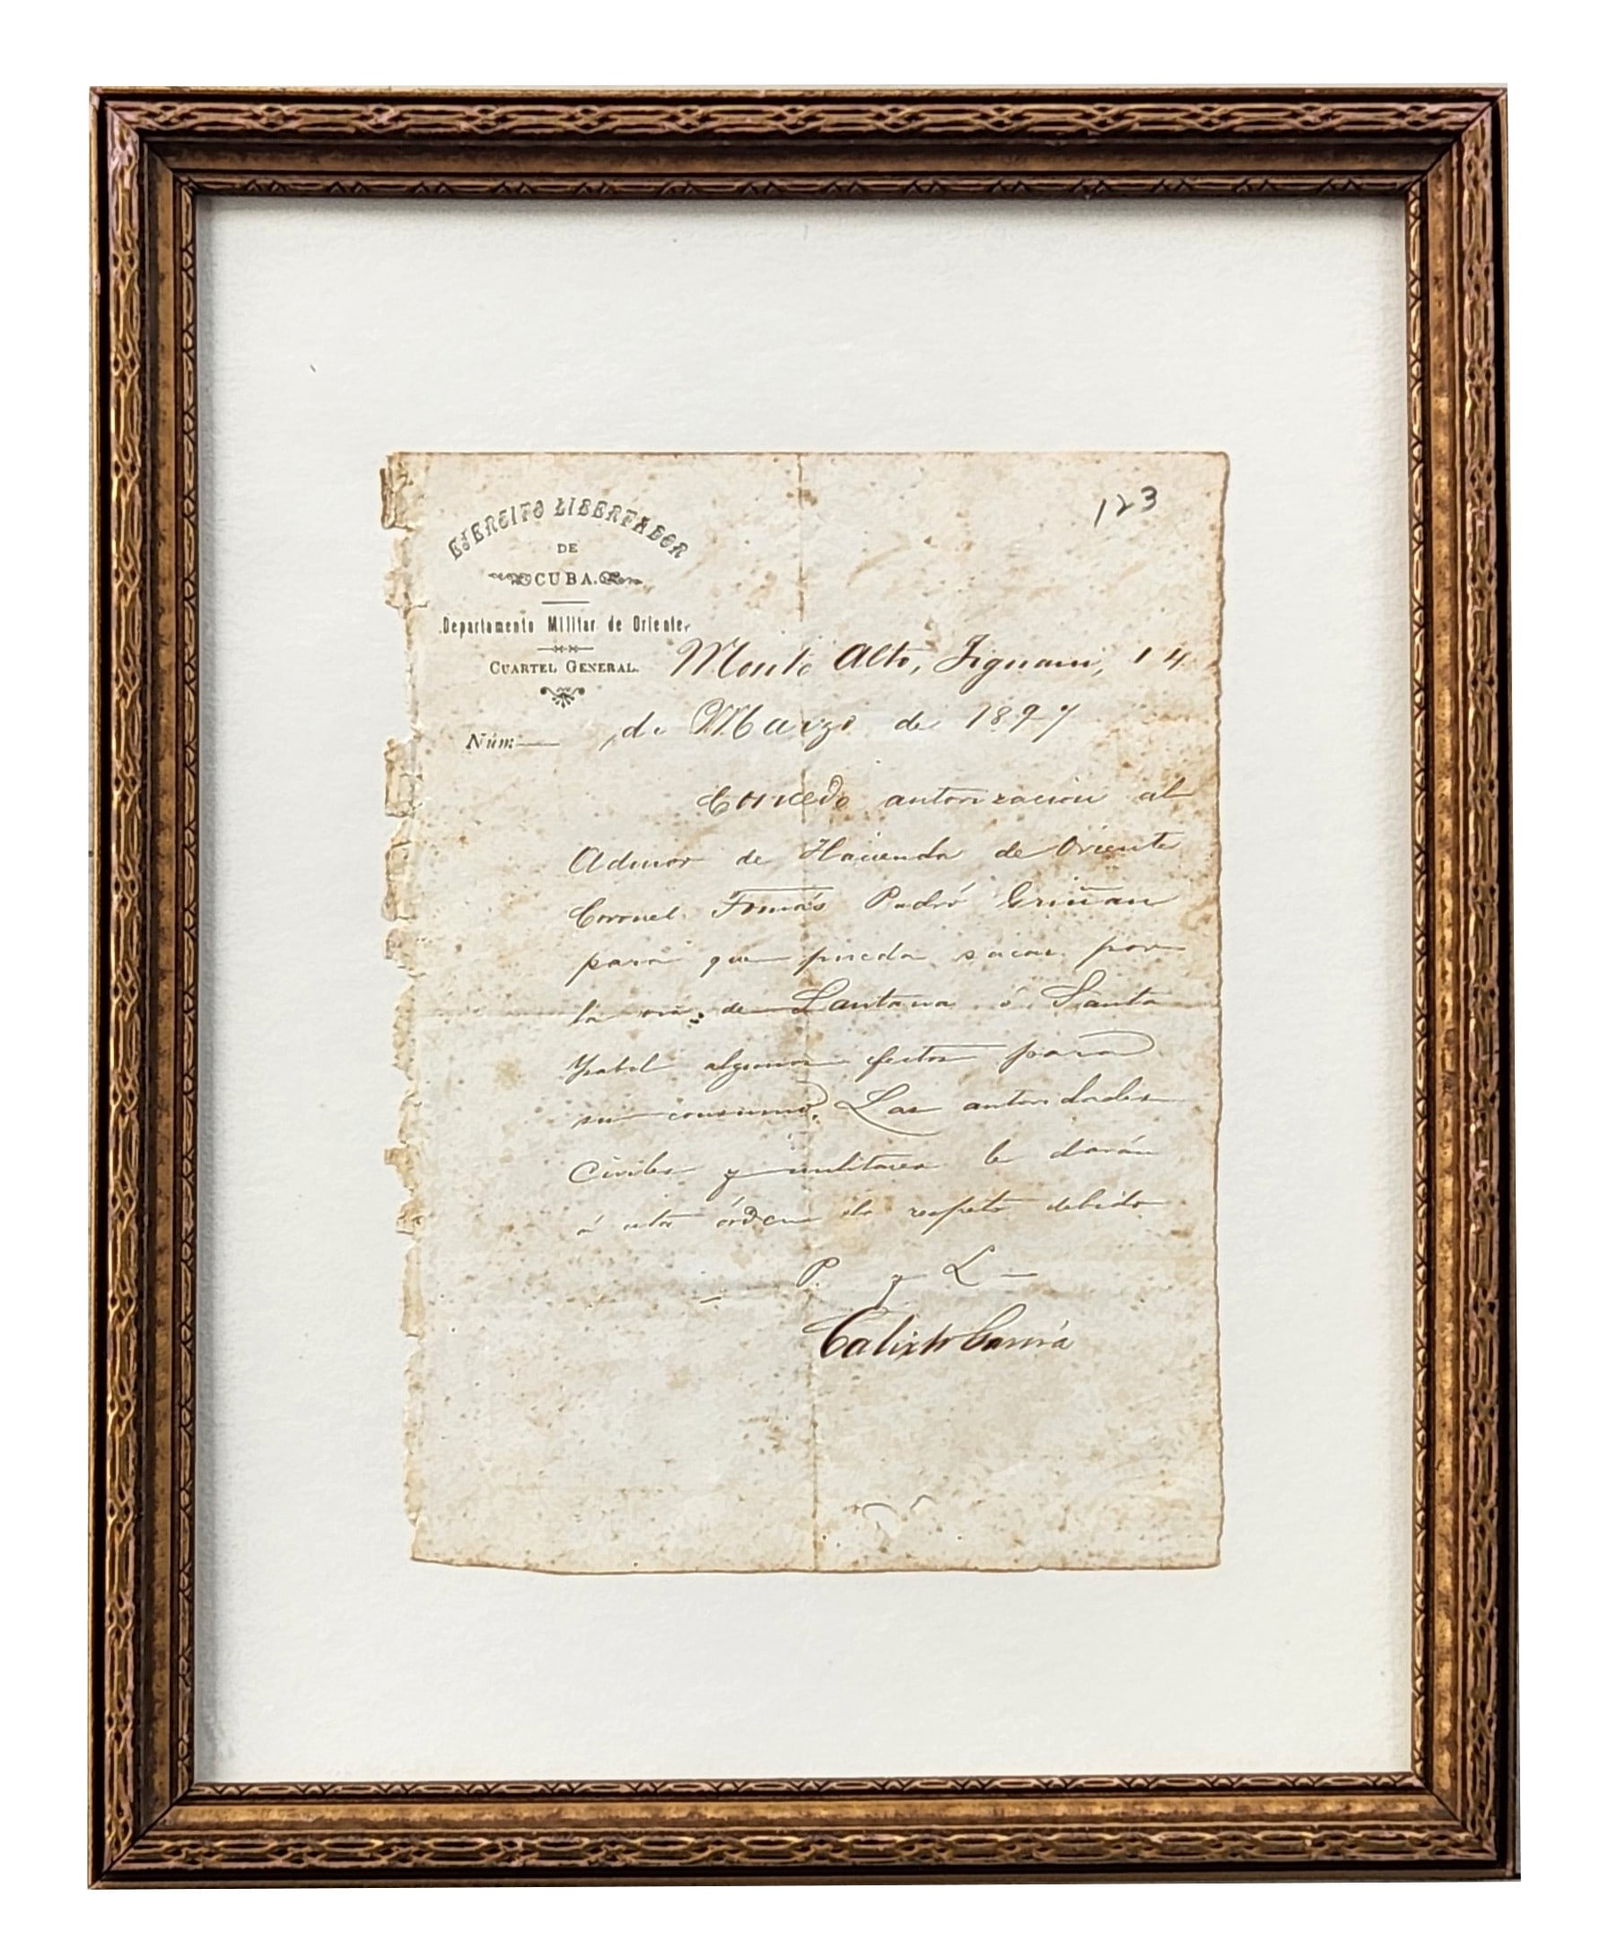 123
EJERCITO LIBERTADOR
DE
CUBA.
Departamento Militar de Oriente.
CUARTEL GENERAL.
Monte Alto, Jiguani, 14
Núm
de Marzo de 1897
Concedo autorizacion al
Admor de Hacienda de Oriente
Coronel Tomás Padró Griñan
para que pueda sacar por
la via de Lantana ó Santa
Ysabel algunos efectos para
su consumo. Las autoridades
Civiles y militares le darán
á esta órden el respeto debido
P. y L
Calixto García